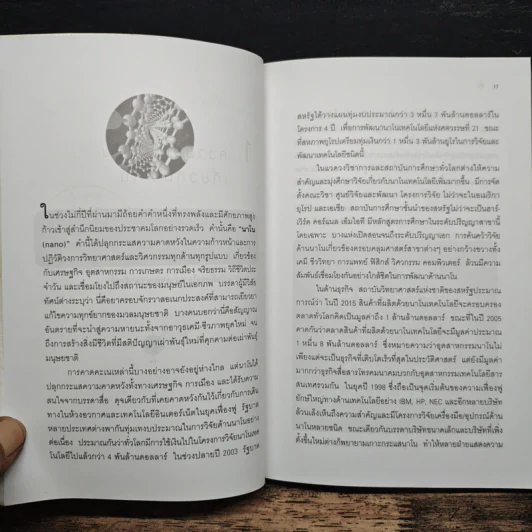 ในช่วงไม่กี่ปีที่ผ่านมามีถ้อยคำคำหนึ่งที่ทรงพลังและมีศักยภาพสูง
ก้าวเข้าสู่สำนึกนิยมของประชาคมโลกอย่างรวดเร็ว คำนั้นคือ "นาโน
(nano)" คำนี้ได้ปลุกกระแสความคาดหวังในความก้าวหน้าและการ
ปฏิวัติวงการวิทยาศาสตร์และวิศวกรรมทุกด้านทุกรูปแบบ เกี่ยวข้อง
กับเศรษฐกิจ อุตสาหกรรม การเกษตร การเมือง จริยธรรม วิถีชีวิตประ
จำวัน และเชื่อมโยงไปถึงสถานะของมนุษย์ในเอกภพ บรรดาผู้มีวิสัย
ทัศน์ต่างระบุว่า นี่คือยาครอบจักรวาลอเนกประสงค์ที่สามารถเยียวยา
แก้ไขความทุกข์ยากของมวลมนุษยชาติ บางคนบอกว่านี่คือสัญญาณ
อันตรายที่จะนำสู่ความหายนะทั้งจากอาวุธเคมี-ชีวภาพยุคใหม่ จน
ถึงการสร้างสิ่งมีชีวิตที่มีสติปัญญาเผ่าพันธุ์ใหม่ที่คุกคามต่อเผ่าพันธุ์
มนุษยชาติ
การคาดคะเนเหล่านี้บางอย่างอาจยังอยู่ห่างไกล แต่นาโนได้
ปลุกกระแสความคาดหวังทั้งทางเศรษฐกิจ การเมือง และได้รับความ
สนใจจากบรรดาสื่อ ดุจเดียวกับที่เคยคาดหวังกันไว้เกี่ยวกับการเดิน
ทางในห้วงอวกาศและเทคโนโลยีอินเตอร์เน็ตในยุคเฟื่องฟู รัฐบาล
หลายประเทศต่างพากันทุ่มเทงบประมาณในการวิจัยด้านนาโนอย่าง
ต่อเนื่อง ประมาณกันว่าทั่วโลกมีการใช้เงินไปในโครงการวิจัยนาโนเทค
โนโลยีไปแล้วกว่า 4 พันล้านดอลลาร์ ในช่วงปลายปี 2003 รัฐบาล
สหรัฐได้วางแผนทุ่มงบประมาณกว่า 3 หมื่น 7 พันล้านดอลลาร์ใน
โครงการ 4 ปี เพื่อการพัฒนานาโนเทคโนโลยีแห่งศตวรรษที่ 21 ขณะ
ที่สหภาพยุโรปเตรียมทุ่มเงินกว่า 1 หมื่น 3 พันล้านยูโรในการวิจัยและ
พัฒนาเทคโนโลยีชนิดนี้
ในแวดวงวิชาการและสถาบันการศึกษาทั่วโลกต่างให้ความ
สำคัญและมุ่งศึกษาวิจัยเกี่ยวกับนาโนเทคโนโลยีเพิ่มมากขึ้น มีการจัด
ตั้งคณะวิชา ศูนย์วิจัยและพัฒนา โครงการวิจัย ไม่ว่าจะในอเมริกา
ยุโรป และเอเชีย สถาบันการศึกษาชั้นนำของสหรัฐไม่ว่าจะเป็นฮาร์-
เวิร์ด คอร์แนล เอ็มไอที มีหลักสูตรการศึกษาในระดับปริญญาสาขานี้
โดยเฉพาะ บางแห่งเปิดสอนจนถึงระดับปริญญาเอก การค้นคว้าวิจัย
ด้านนาโนเกี่ยวข้องครอบคลุมศาสตร์สาขาต่างๆ อย่างกว้างขวางทั้ง
เคมี ชีววิทยา การแพทย์ ฟิสิกส์ วิศวกรรม คอมพิวเตอร์ ล้วนมีความ
สัมพันธ์เชื่อมโยงกันอย่างใกล้ชิดในการพัฒนาด้านนาโน
ในด้านธุรกิจ สถาบันวิทยาศาสตร์แห่งชาติของสหรัฐประมาณ
การณ์ว่า ในปี 2015 สินค้าที่ผลิตด้วยนาโนเทคโนโลยีจะครอบครอง
ตลาดทั่วโลกคิดเป็นมูลค่าถึง 1 ล้านล้านดอลลาร์ ขณะที่ในปี 2005
คาดกันว่าตลาดที่ผลิตด้วยนาโนเทคโนโลยีจะมีมูลค่าประมาณ
1 หมื่น 8 พันล้านดอลลาร์ ซึ่งหมายความว่าอุตสาหกรรมนาโนไม่
เพียงแต่จะเป็นธุรกิจที่เติบโตเร็วที่สุดในประวัติศาสตร์ แต่ยังมีมูลค่า
มากกว่าธุรกิจสื่อสารโทรคมนาคมบวกกับอุตสาหกรรมเทคโนโลยีสาร
สนเทศรวมกัน ในยุคปี 1998 ซึ่งถือเป็นจุดเริ่มต้นของความเฟื่องฟู
ยักษ์ใหญ่ทางด้านเทคโนโลยีอย่าง IBM, HP, NEC และอีกหลายบริษัท
ล้วนเล็งเห็นถึงความสำคัญและมีโครงการวิจัยเครื่องมือ/อุปกรณ์ด้าน
นาโนหลายชนิด ขณะเดียวกันบรรดาบริษัทขนาดเล็กและบริษัทที่เพิ่ง
ตั้งขึ้นใหม่ต่างก็พยายามเกาะกระแสนาโน ทำให้หลายฝ่ายแสดงความ